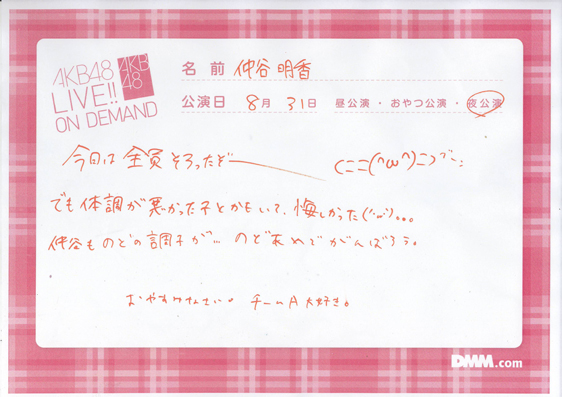 AKB48
LIVE!!
ON DEMAND
AKB
48
名前 仲谷明香
公演日 8月 31日 昼公演・おやつ公演・夜公演
今日は全員そろったぞー
でも体調が悪かった子とかもいて、悔しかった(´・ω・`)...
仲谷ものどの調子が... のどあめでがんばろう。
おやすみなさい。 チームA大好き。
DMM.com